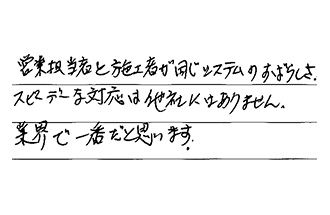 営業担当者と施工者が同じシステムのすばらしさ.
スピーディーな対応は他社にはありません.
業界で一番だと思います.